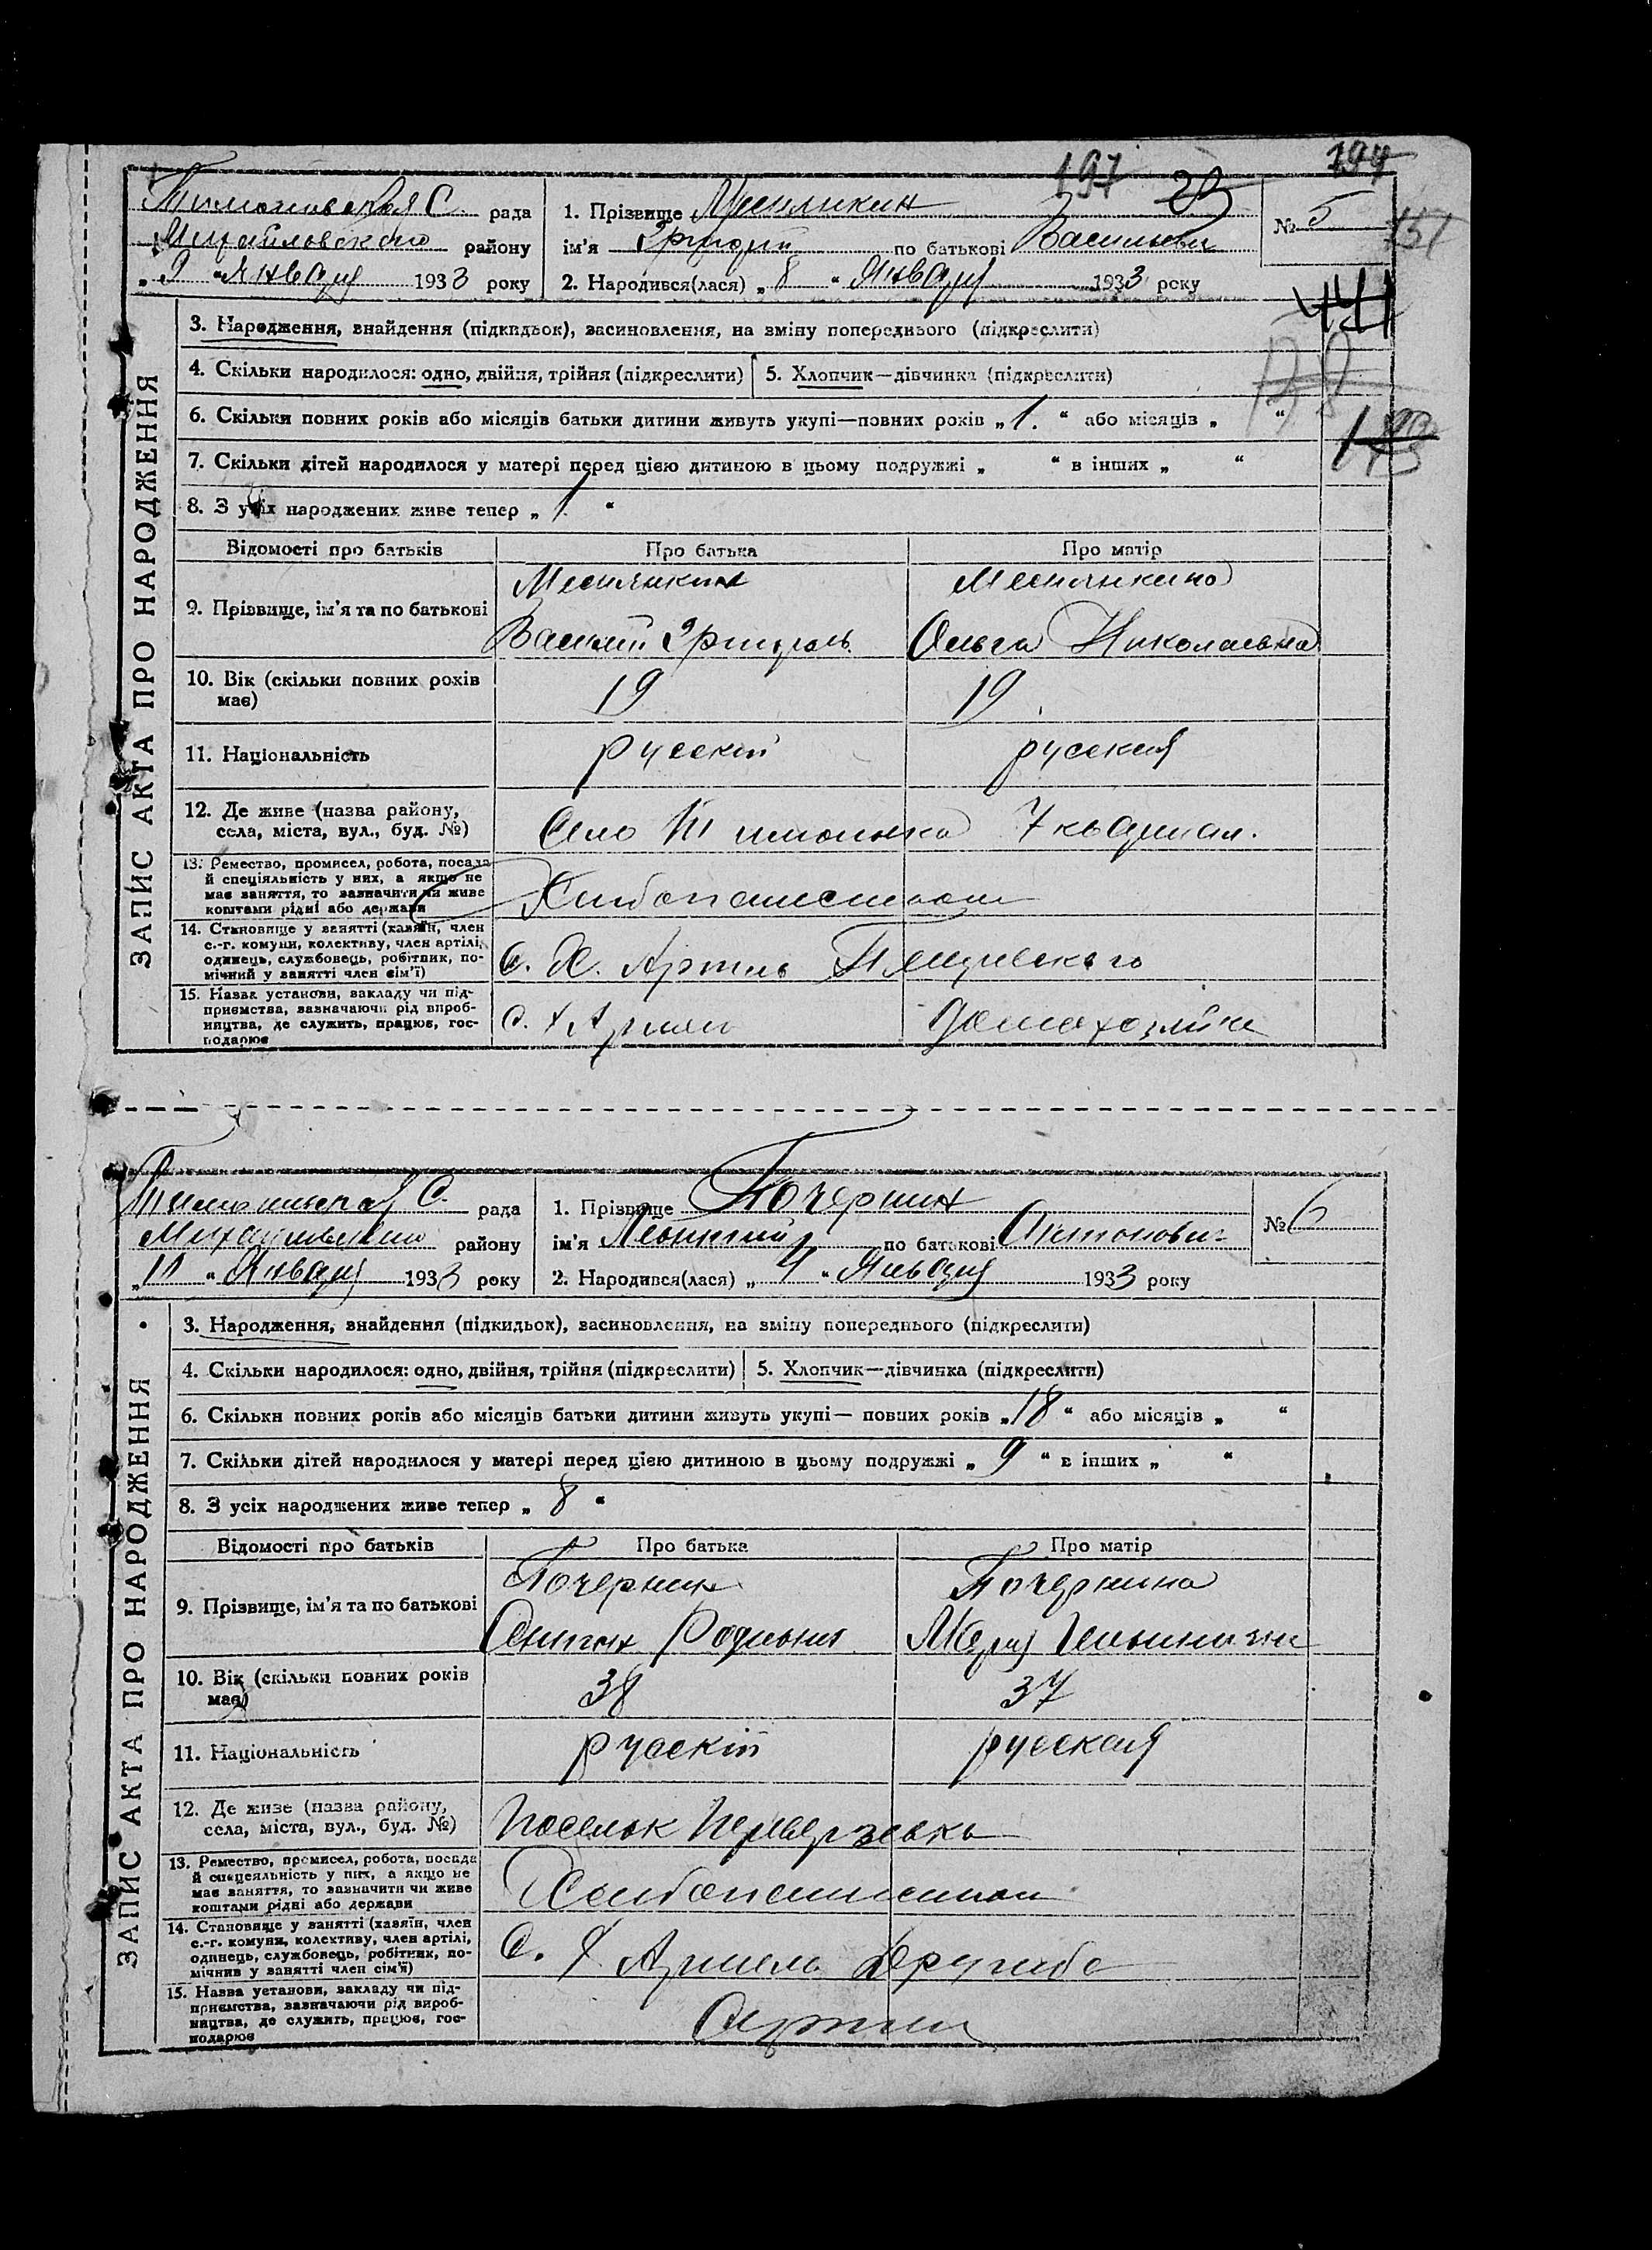 197
194
Тимошовская С. рада
Михайловского району
„ 9 “ Января 1933 року
1. Прізвище
ім'я Григорій по батькові Василиевич
2. Народився(лася) „ 8 “ Января 1933 року
№ 5
151
441
3. Народження, знайдення (підкидьок), засиновлення, на зміну попереднього (підкреслити)
4. Скільки народилося: одно, двійня, трійня (підкреслити)
5. Хлопчик—дівчинка (підкреслити)
6. Скільки повних років або місяців батьки дитини живуть укупі—повних років „ 1. “ або місяців „ “
7. Скільки дітей народилося у матері перед цією дитиною в цьому подружжі „ “ в інших „ “
8. З усіх народжених живе тепер „ 1 “
ЗАПИС АКТА ПРО НАРОДЖЕННЯ
Відомості про батьків
Про батька
Про матір
9. Прізвище, ім'я та по батькові
Василий
Ольга Николаевна
10. Вік (скільки повних років
має)
19
19.
11. Національність
русскій
русская
12. Де живе (назва району,
села, міста, вул., буд. №)
Село Тимошовка 7 квартал.
13. Ремество, промисел, робота, посада
й спеціяльність у них, а якщо не
має заняття, то зазначити чи живе
коштами рідні або держави
14. Становище у занятті (хазяїн, член
с.-г. комуни, колективу, член артілі,
одинець, службовець, робітник, по-
мічний у занятті член сім'ї)
С. Х. Артиль
15. Назва установи, закладу чи під-
приємства, зазначаючи рід вироб-
ництва, де служить, працює, гос-
подарює
С. Х Артел
Домахозяйка
С. рада
Михайловского району
„ 11 “ Января 1933 року
1. Прізвище Почернин
ім'я Леонтий по батькові Антонович
2. Народився(лася) „ 4 “ Января 1933 року
№ 6
3. Народження, знайдення (підкидьок), засиновлення, на зміну попереднього (підкреслити)
4. Скільки народилося: одно, двійня, трійня (підкреслити)
5. Хлопчик—дівчинка (підкреслити)
6. Скільки повних років або місяців батьки дитини живуть укупі— повних років „ 18 “ або місяців „ “
7. Скільки дітей народилося у матері перед цією дитиною в цьому подружжі „ 9 “ в інших „ “
8. З усіх народжених живе тепер „ 8 “
ЗАПИС АКТА ПРО НАРОДЖЕННЯ
Відомості про батьків
Про батька
Про матір
9. Прізвище, ім'я та по батькові
Почернин
Почернина
Антон
Мария
10. Вік (скільки повних років
має)
38
37
11. Національність
русскій
русская
12. Де живе (назва району,
села, міста, вул., буд. №)
Поселок
13. Ремество, промисел, робота, посада
й спецеяльність у них, а якщо не
має заняття, то зазначити чи живе
коштами рідні або держави
14. Становище у занятті (хазяїн, член
с.-г. комуни, колективу, член артілі,
одинець, службовець, робітник, по-
мічнив у занятті член сім'ї)
С. Х Артель Дружба
15. Назва установи, закладу чи під-
приємства, зазначаючи рід вироб-
ництва, де служить, працює, гос-
подарює